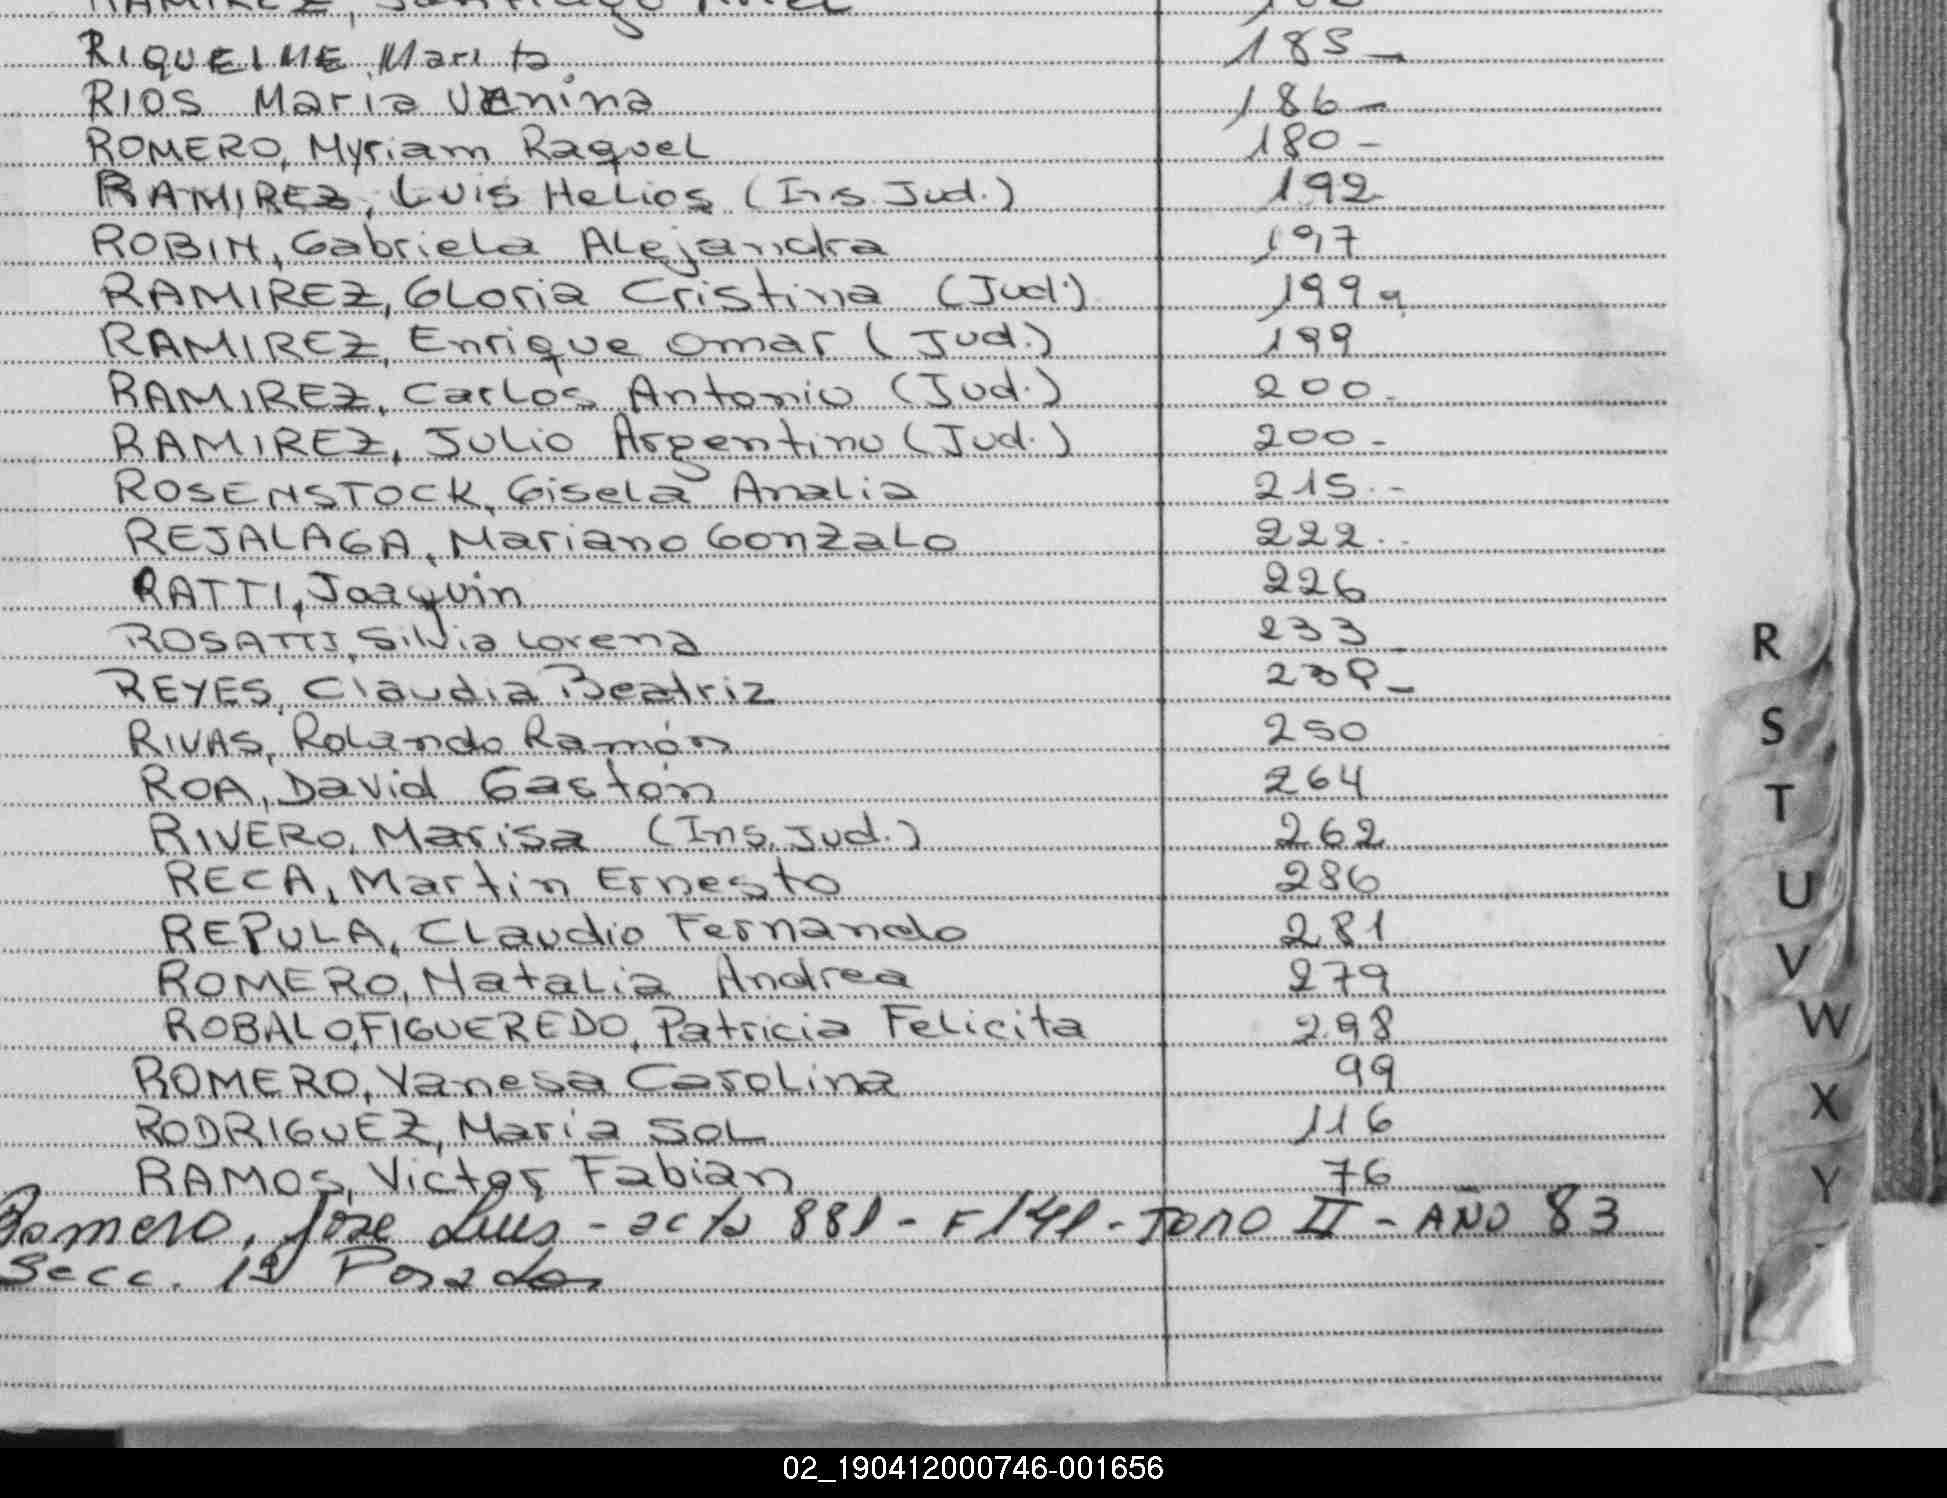 RAMIREZ, Santiago
RIQUELME, Marita 185 -
RIOS Maria Vanina 186 -
ROMERO, Myriam Raquel 180 -
RAMIREZ, Luis Helios (Ins. Jud.) 192
ROBIN, Gabriela Alejandra 197
RAMIREZ, Gloria Cristina (Jud.) 199
RAMIREZ, Enrique Omar (Jud.) 199
RAMIREZ, Carlos Antonio (Jud.) 200 -
RAMIREZ, Julio Argentino (Jud.) 200 -
ROSENSTOCK, Gisela Analia 215 -
REJALAGA, Mariano Gonzalo 222
RATTI, Joaquin 226
ROSATTI, Silvia Lorena 233
REYES, Claudia Beatriz
RIVAS, Rolando Ramón 250
ROA, David Gastón 264
RIVERO, Marisa (Ins. Jud.) 262
RECA, Martin Ernesto 286
REPULA, Claudio Fernando 281
ROMERO, Natalia Andrea 279
ROBALO FIGUEREDO, Patricia Felicita 298
ROMERO, Vanesa Carolina 99
RODRIGUEZ, Maria Sol 116
RAMOS, Victor Fabian 76
Romero, Jose Luis - acta 881 - F 141 - TOMO II - AÑO 83
Secc. 1ª Posadas
R
S
T
U
V
W
X
Y
02_190412000746-001656